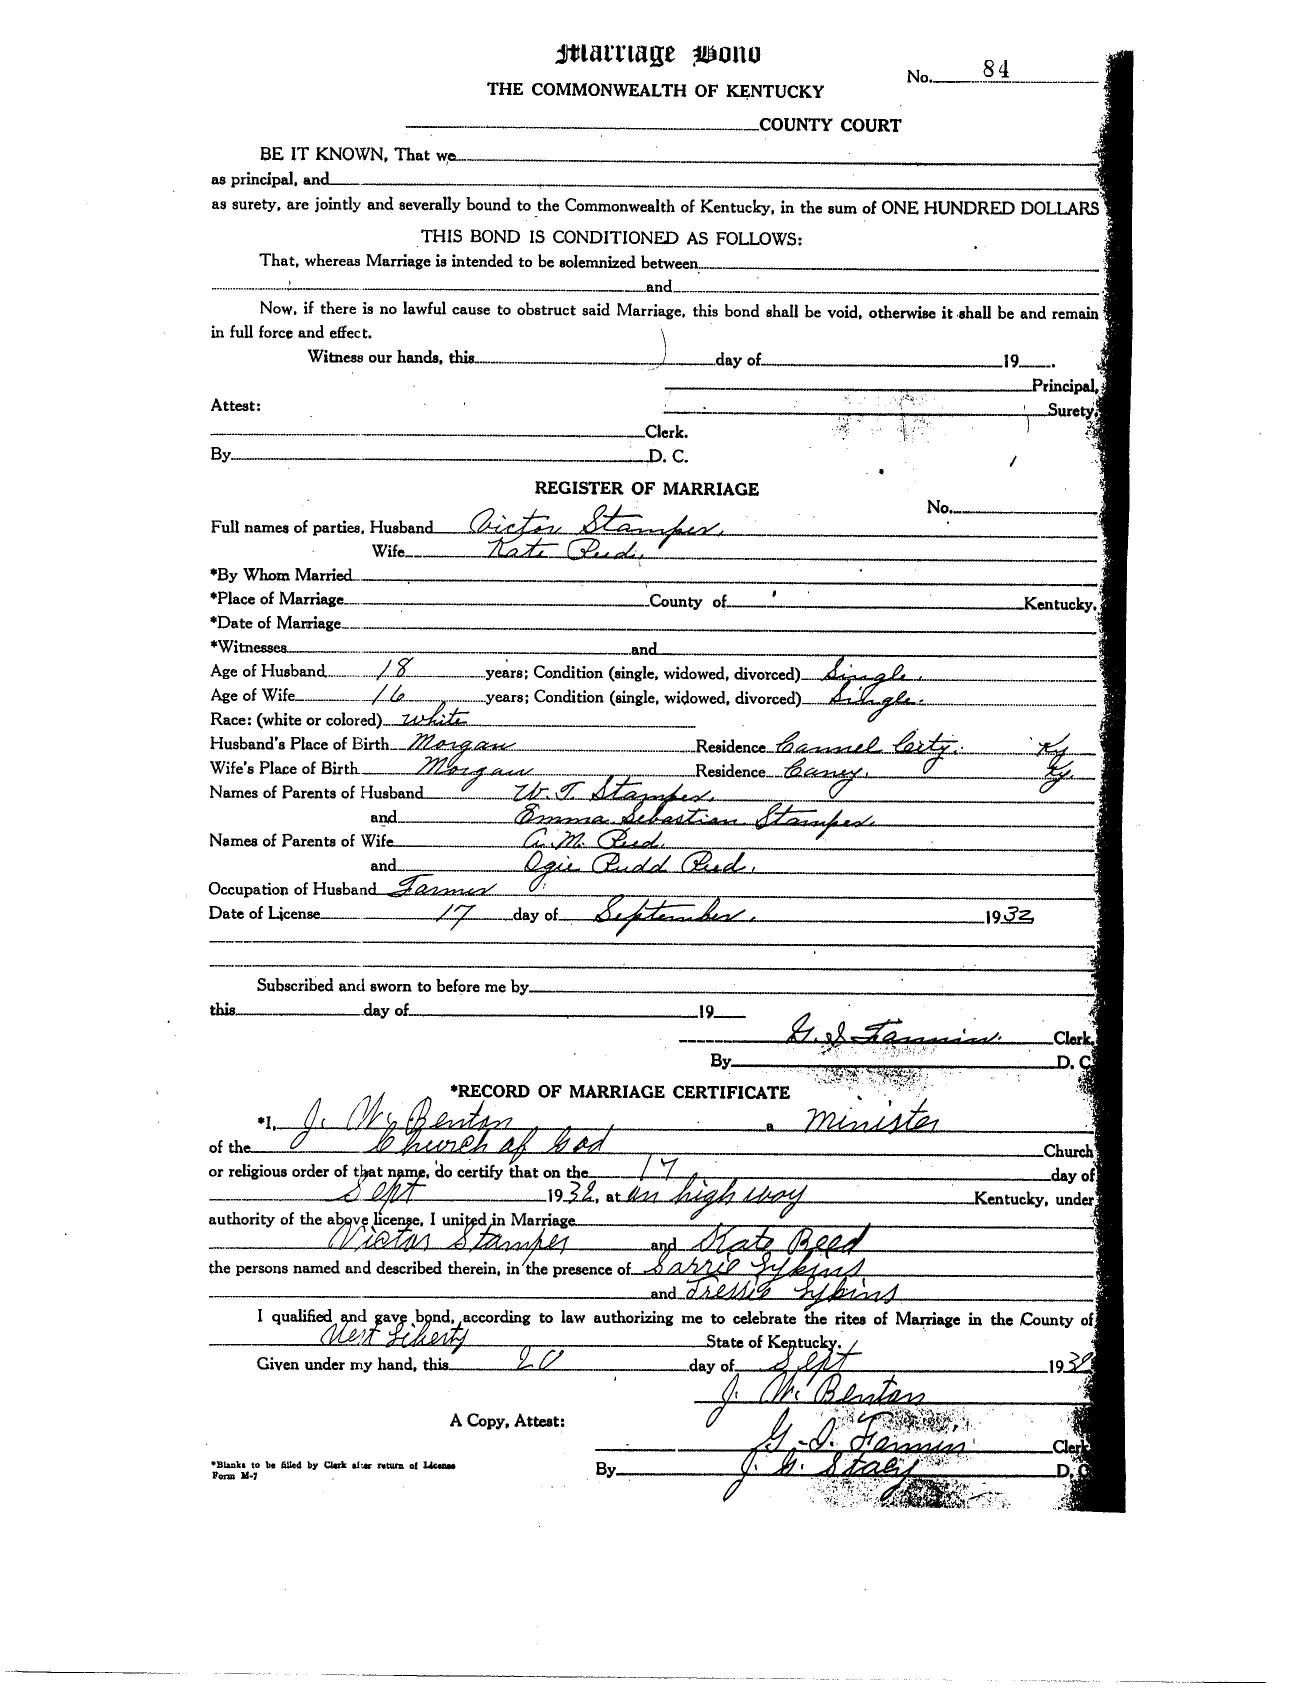 Marriage Bond
No. 84
THE COMMONWEALTH OF KENTUCKY
COUNTY COURT
BE IT KNOWN, That we
as principal, and
as surety, are jointly and severally bound to the Commonwealth of Kentucky, in the sum of ONE HUNDRED DOLLARS
THIS BOND IS CONDITIONED AS FOLLOWS:
That, whereas Marriage is intended to be solemnized between
and
Now, if there is no lawful cause to obstruct said Marriage, this bond shall be void, otherwise it shall be and remain
in full force and effect.
Witness our hands, this day of 19 .
Principal,
Attest: Surety.
Clerk.
By D. C.
REGISTER OF MARRIAGE
No.
Full names of parties, Husband Victor Stamper.
Wife Kate Reed.
*By Whom Married
*Place of Marriage County of Kentucky.
*Date of Marriage
*Witnesses and
Age of Husband 18 years; Condition (single, widowed, divorced) Single.
Age of Wife 16 years; Condition (single, widowed, divorced) Single.
Race: (white or colored) white
Husband's Place of Birth Morgan Residence Cannel City. Ky
Wife's Place of Birth Morgan Residence Caney. Ky.
Names of Parents of Husband W. T. Stamper.
and Emma Sebastian Stamper.
Names of Parents of Wife A. M. Reed.
and Ogie Rudd Reed.
Occupation of Husband Farmer
Date of License 17 day of September. 1932
Subscribed and sworn to before me by
this day of 19
Fannin. Clerk,
By D. C.
*RECORD OF MARRIAGE CERTIFICATE
*I, J. W. Benton a Minister
of the Church of God Church
or religious order of that name, do certify that on the 17 day of
Sept 1932, at on high way Kentucky, under
authority of the above license, I united in Marriage
Victor Stamper and Kate Reed
the persons named and described therein, in the presence of Sarrie Lykins
and Tressie Lykins
I qualified and gave bond, according to law authorizing me to celebrate the rites of Marriage in the County of
West Liberty State of Kentucky.
Given under my hand, this 20 day of Sept 1932
J. W. Benton
A Copy, Attest:
Fannin Clerk
*Blanks to be filled by Clerk after return of License
Form M-7
By Stacy D. C.